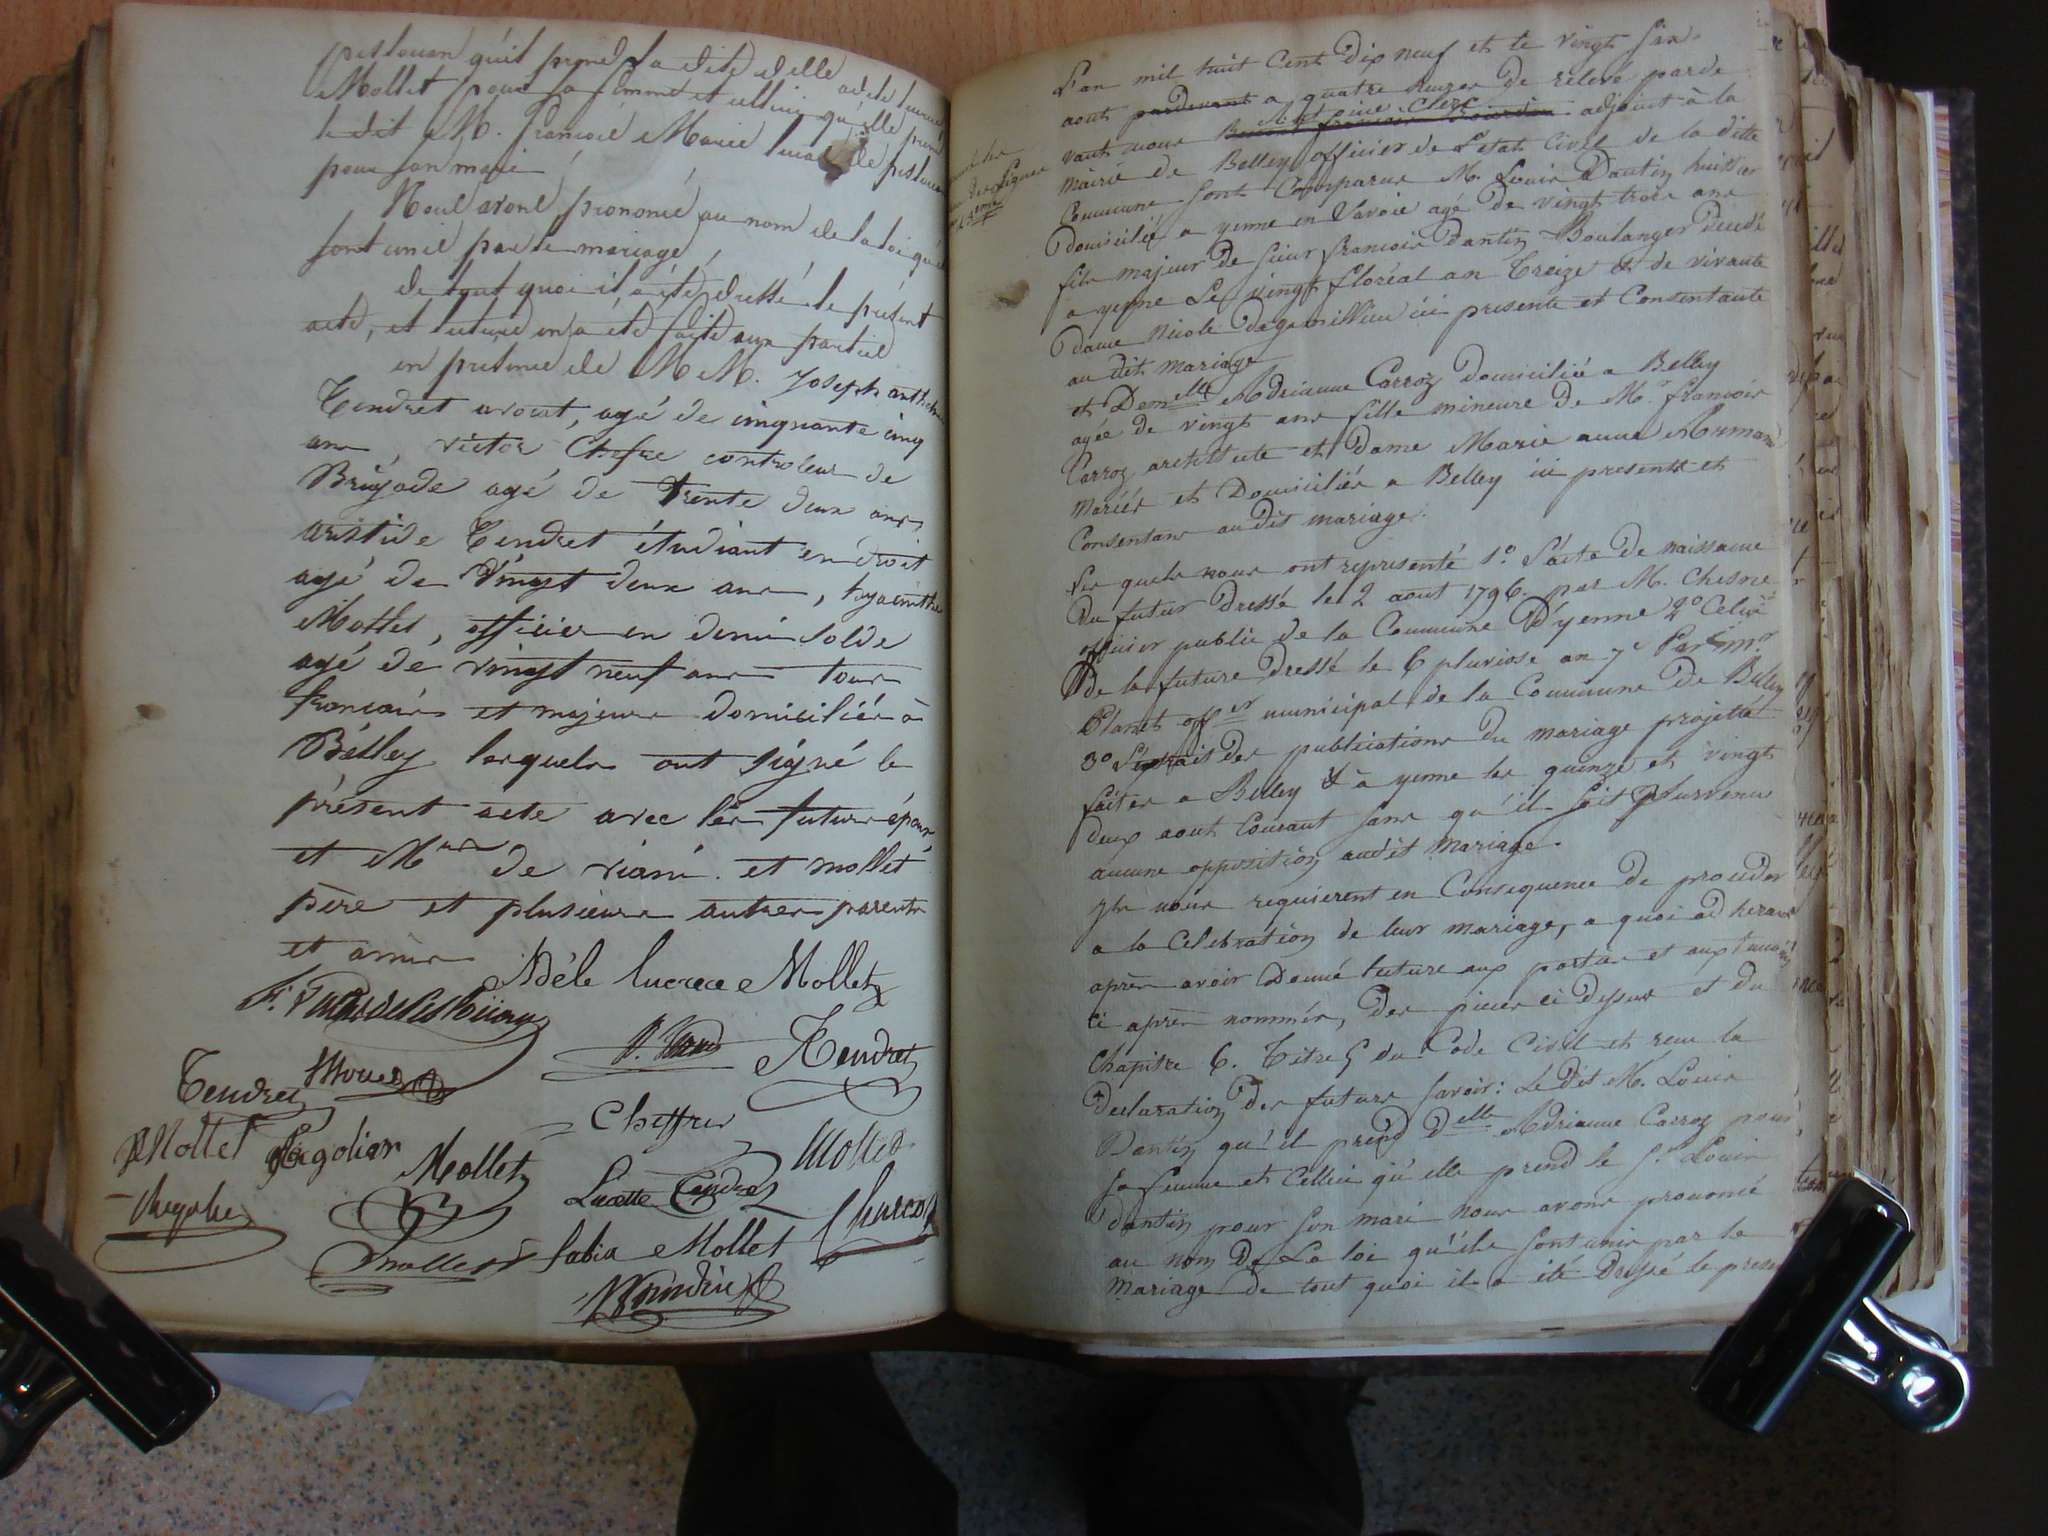 pistouan qu'il prend la dite delle adele lucrece
Mollet pour sa femme et celleci qu'elle prend
le dit M. francois Marie lucas de pistouan
pour son mari
Nous avons prononcé au nom de la loi qu'ils
sont unis par le mariage
de tout quoi il a été dressé le présent
acte, et lecture en a été faite aux parties
en presence de M M. Joseph anthelme
Tendret avocat, agé de cinquante cinq
ans, victor Cheffre controleur de
Brigade agé de trente deux ans,
aristide Tendret étudiant en droit
agé de vingt deux ans, hyacinthe
Mollet, officier en demi solde
agé de vingt neuf ans tous
francais et majeurs domiciliés à
Belley lesquels ont signé le
présent acte avec les futurs époux
et M de et mollet
père et plusieurs autres parents
et amis
Adèle lucrece Mollet
Tendret
Tendret
Cheffre
Mollet
Mollet
Mollet
Lucette Tendret
Mollet
Mollet
L'an mil huit Cent Dix neuf et le vingt six
aout pardevant a quatre heures de relevé parde
vant nous adjoint à la
mairie de Belley officier de L'etat Civil de la ditte
Commune sont Comparus M. Louis Dantin huissier
Domicilié a yenne en Savoie agé de vingt trois ans
fils majeur de sieur francois Dantin Boulanger decedé
a yenne Le vingt floréal an Treize & de vivante
dame Nicole ici presente et Consentante
au dit mariage
et Demelle Adrianne Carroz Domiciliée a Belley
agée de vingt ans fille mineure de Mr francois
Carroz architecte et Dame Marie anne Armand
Mariés et Domiciliés a Belley ici presents et
Consentans au dit mariage.
Les quels nous ont representé 1.o L'acte de naissance
Du futur Dressé le 2 aout 1796. par M. Chesne
officier public de la Commune D'yenne 2o Celui
De la future dressé le 6 pluviose an 7e Par Mr
Planet offer municipal de la Commune de Belley
3o L'extrait des publications du mariage projetté
faites a Belley & à yenne les quinze et vingt
deux aout Courant sans qu'il soit survenu
aucune opposition audit mariage.
Ils nous requierent en Consequence de proceder
a la Celebration de leur mariage, a quoi adherant
après avoir Donné lecture aux parties et aux temoins
ci après nommés, Des pieces ci Dessus et du
Chapitre 6. Titre 5 du Code Civil et recu la
declaration des futurs savoir: Le dit M. Louis
Dantin qu'il prend Delle Adrianne Carroz pour
sa femme et Celleci qu'elle prend le Sr. Louis
dantin pour son mari nous avons prononcé
au nom De La loi qu'ils sont unis par le
mariage de tout quoi il a été Dressé le present